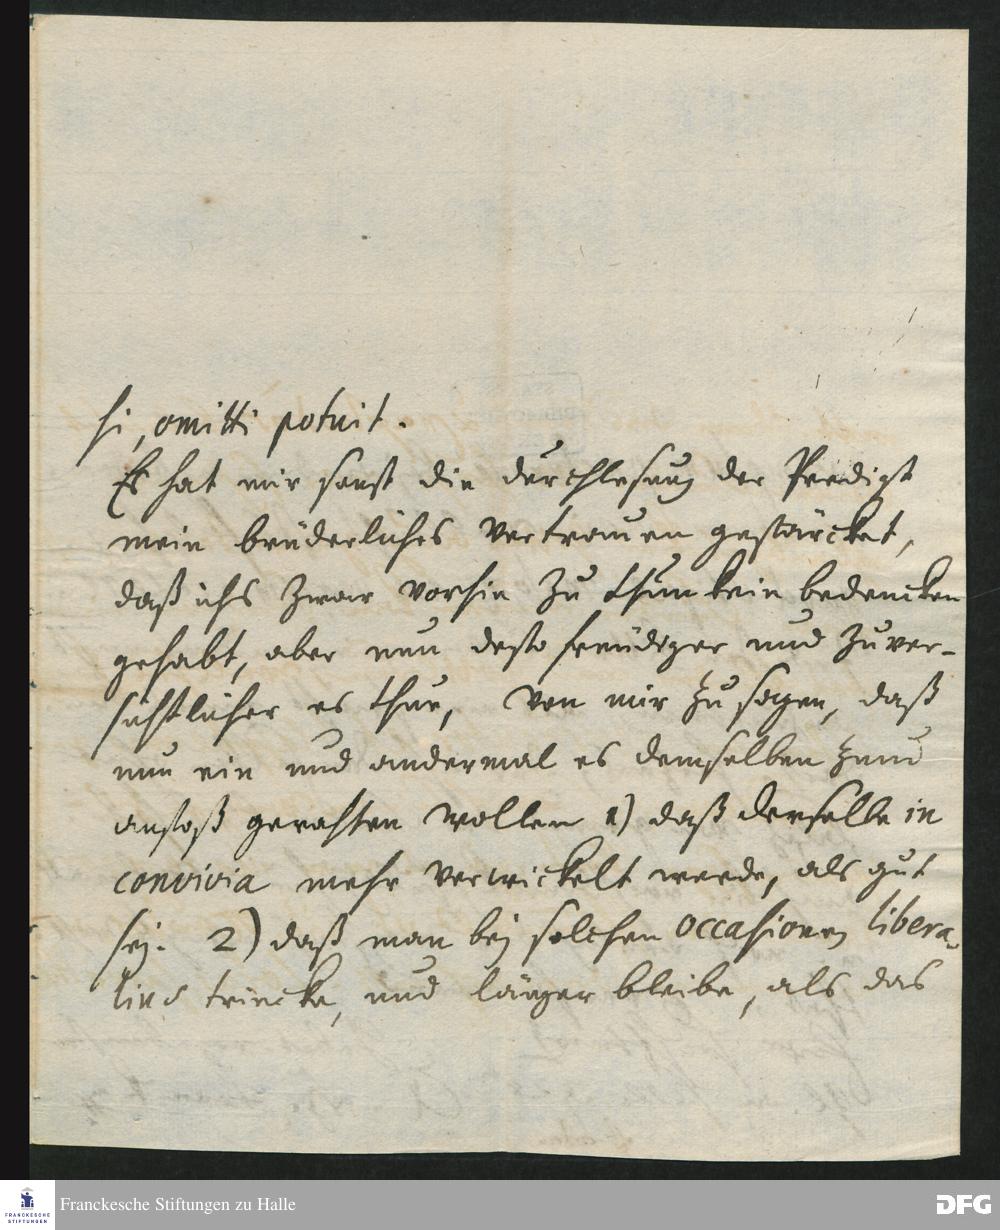 si, omitti potuit.
Es hat mir sonst die durchlesung der Predigt
mein brüderliches Vertrauen gestärcket,
daß ichs zwar vorhin zu thun kein bedencken
gehabt, aber nun desto freudiger und zuver-
sichtlicher es thue, von mir zu sagen, daß
nun ein und andermal es demselben zum
anstoß gerahten wollen 1) daß derselbe in
convivia mehr verwickelt werde, als gut
sey. 2) daß man bey solchen occasionen libera-
lius trincke, und länger bleibe, als das
FRANCKESCHE
STIFTUNGEN
Franckesche Stiftungen zu Halle
DFG